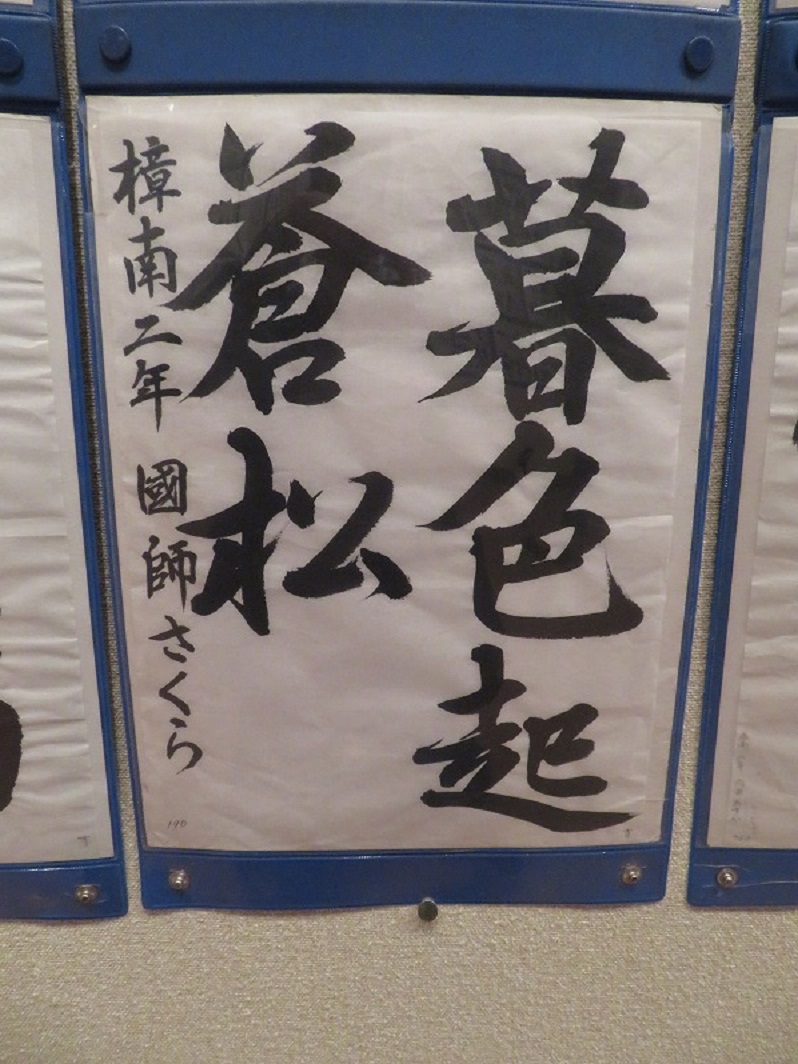 暮色起
蒼松
樟南二年 國師さくら
190